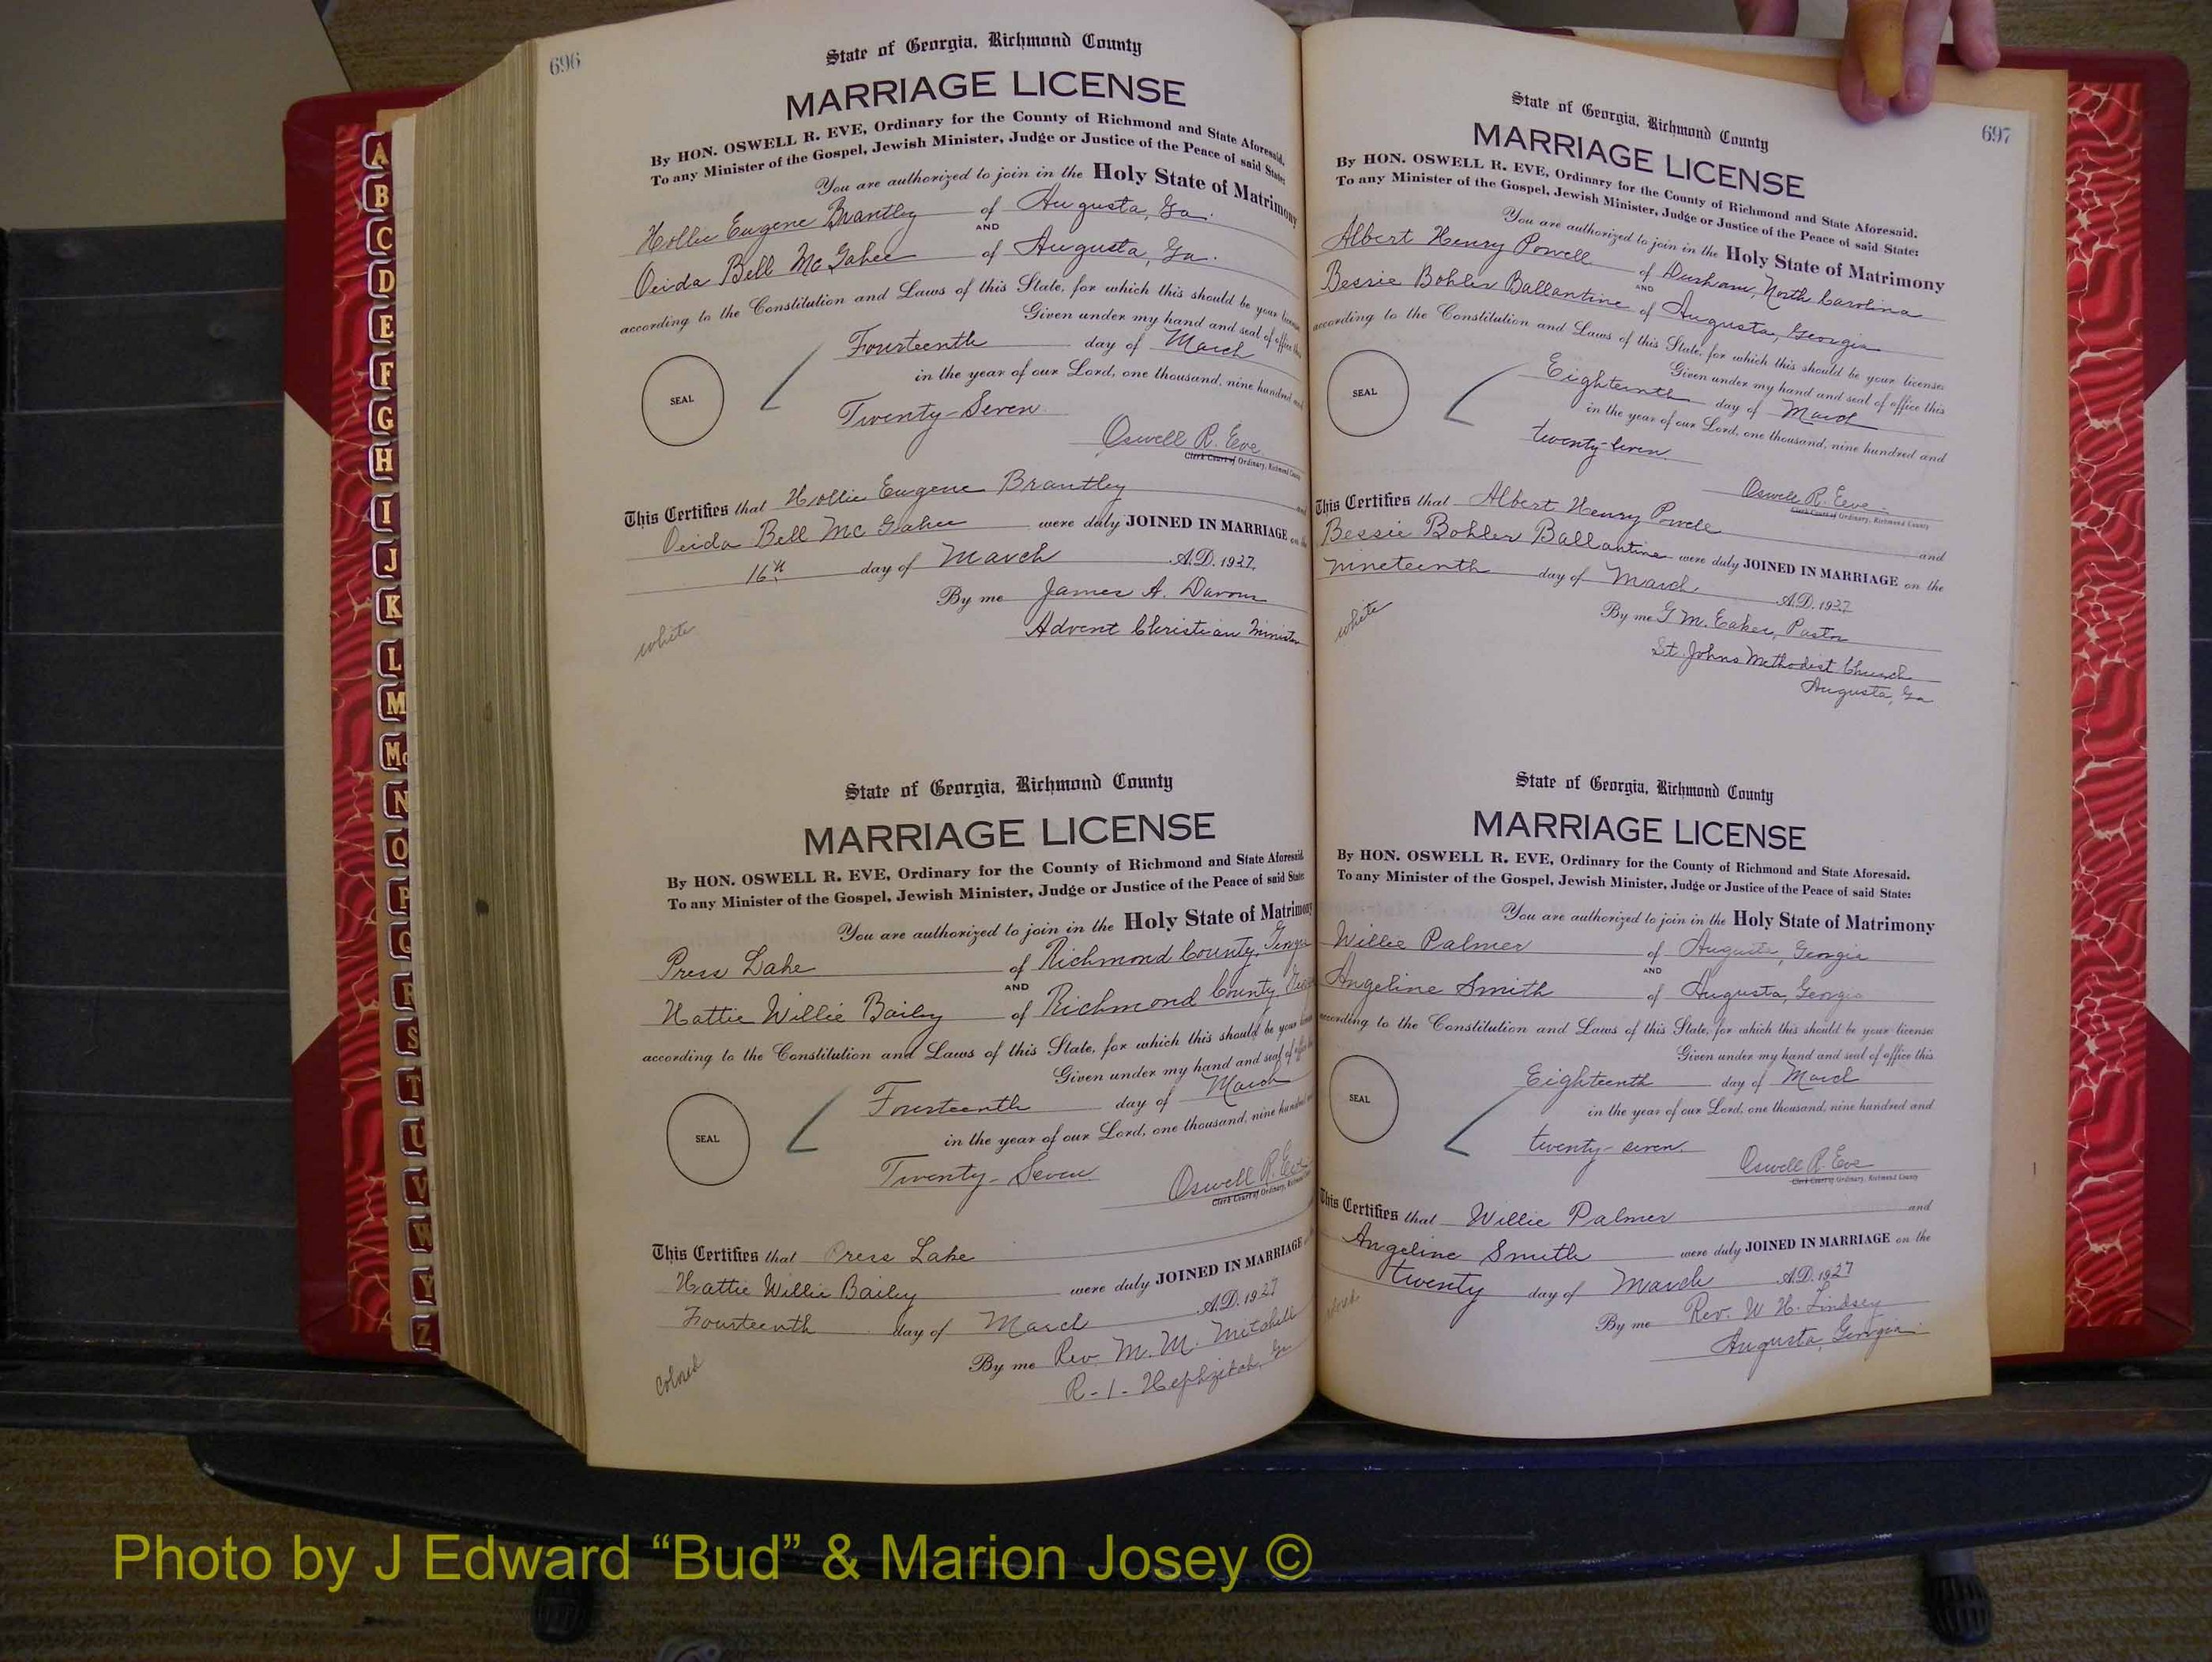 696
State of Georgia, Richmond County
MARRIAGE LICENSE
By HON. OSWELL R. EVE, Ordinary for the County of Richmond and State Aforesaid.
To any Minister of the Gospel, Jewish Minister, Judge or Justice of the Peace of said State:
You are authorized to join in the Holy State of Matrimony
Hollie Eugene Brantley of Augusta, Ga.
AND
Ouida Bell McGahee of Augusta, Ga.
according to the Constitution and Laws of this State, for which this should be your license
Given under my hand and seal of office this
Fourteenth day of March
in the year of our Lord, one thousand, nine hundred and
SEAL
Twenty-Seven
Oswell R. Eve
Clerk Court of Ordinary, Richmond County
This Certifies that Hollie Eugene Brantley and
Ouida Bell McGahee were duly JOINED IN MARRIAGE on the
16th day of March A.D. 1927.
By me James A.
Advent Christian Minister
white
State of Georgia, Richmond County
MARRIAGE LICENSE
By HON. OSWELL R. EVE, Ordinary for the County of Richmond and State Aforesaid.
To any Minister of the Gospel, Jewish Minister, Judge or Justice of the Peace of said State:
You are authorized to join in the Holy State of Matrimony
Press Lake of Richmond County, Georgia
AND
Hattie Willie Baily of Richmond County,
according to the Constitution and Laws of this State, for which this should be your license
Given under my hand and seal of office
Fourteenth day of March
in the year of our Lord, one thousand, nine hundred
SEAL
Twenty-Seven
Oswell R. Eve
Clerk Court of Ordinary, Richmond
This Certifies that Press Lake
Hattie Willie Baily were duly JOINED IN MARRIAGE
Fourteenth day of March A.D. 1927
By me Rev. M. M. Mitchell
R-1-Hephzibah, Ga
colored
697
State of Georgia, Richmond County
MARRIAGE LICENSE
By HON. OSWELL R. EVE, Ordinary for the County of Richmond and State Aforesaid.
To any Minister of the Gospel, Jewish Minister, Judge or Justice of the Peace of said State:
You are authorized to join in the Holy State of Matrimony
Albert Henry Powell of Durham, North Carolina
AND
Bessie Bohler Ballantine of Augusta, Georgia
according to the Constitution and Laws of this State, for which this should be your license
Given under my hand and seal of office this
Eighteenth day of March
in the year of our Lord, one thousand, nine hundred and
SEAL
twenty-seven.
Oswell R. Eve
Clerk Court of Ordinary, Richmond County
This Certifies that Albert Henry Powell and
Bessie Bohler Ballantine were duly JOINED IN MARRIAGE on the
nineteenth day of March A.D. 1927
By me G. M. Eakes, Pastor
St. Johns Methodist Church
Augusta, Ga
white
State of Georgia, Richmond County
MARRIAGE LICENSE
By HON. OSWELL R. EVE, Ordinary for the County of Richmond and State Aforesaid.
To any Minister of the Gospel, Jewish Minister, Judge or Justice of the Peace of said State:
You are authorized to join in the Holy State of Matrimony
Willie Palmer of Augusta, Georgia
AND
Angeline Smith of Augusta, Georgia
according to the Constitution and Laws of this State, for which this should be your license
Given under my hand and seal of office this
Eighteenth day of March
in the year of our Lord, one thousand, nine hundred and
SEAL
twenty-seven.
Oswell R. Eve
Clerk Court of Ordinary, Richmond County
This Certifies that Willie Palmer and
Angeline Smith were duly JOINED IN MARRIAGE on the
twenty day of March A.D. 1927
By me Rev. W. H. Lindsey
Augusta, Georgia.
colored
A
B
C
D
E
F
G
H
I
J
K
L
M
Mc
N
O
P
Q
R
S
T
U
V
W
Y
Z
Photo by J Edward “Bud” & Marion Josey ©